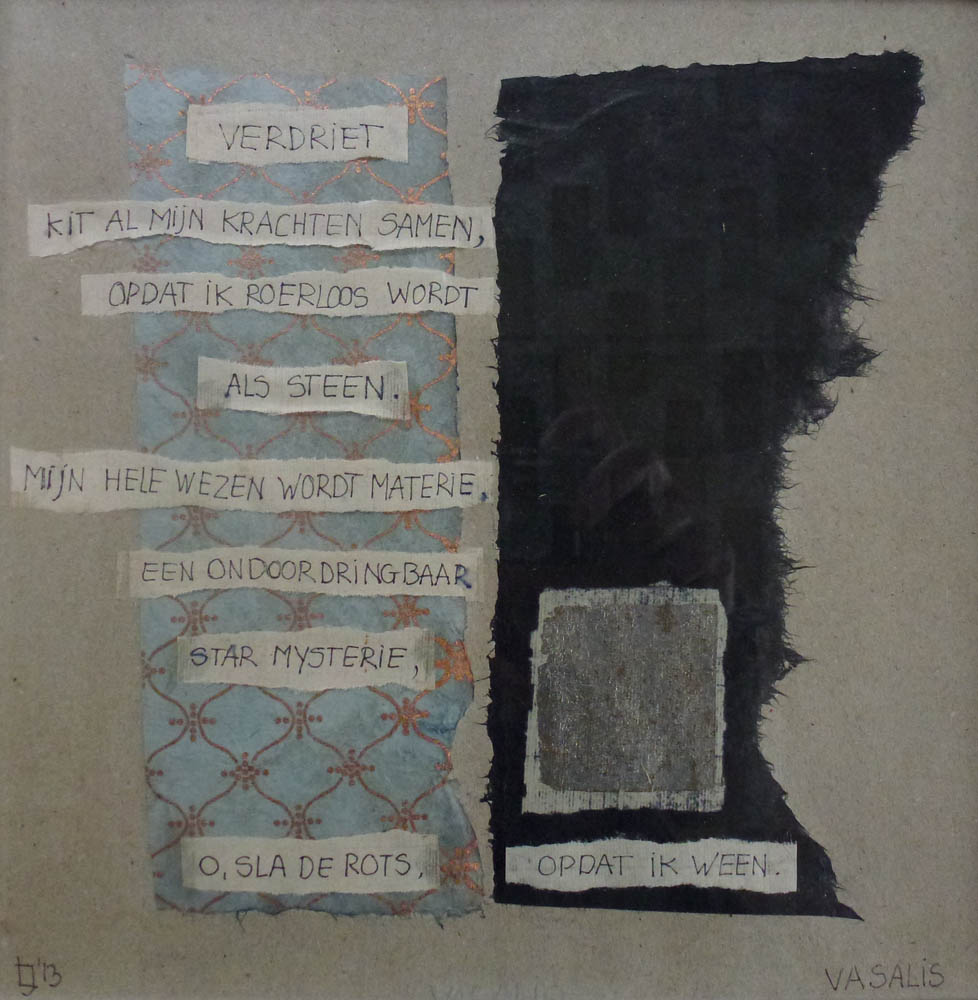 VERDRIET
KIT AL MIJN KRACHTEN SAMEN,
OPDAT IK ROERLOOS WORDT
ALS STEEN.
MIJN HELE WEZEN WORDT MATERIE,
EEN ONDOORDRINGBAAR
STAR MYSTERIE,
O, SLA DE ROTS,
OPDAT IK WEEN.
'13
VASALIS